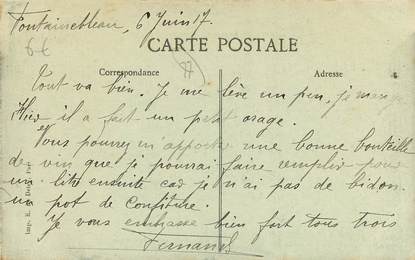 Fontainebleau, 6 Juin 17.
6 €
CARTE POSTALE
Correspondance
Adresse
Tout va bien. Je me lève un peu, je mange
Hier il a fait un petit orage.
Vous pourrez m'apporter une bonne bouteille
de vin que je pourrai faire remplir pour
un lit ensuite car je n'ai pas de bidon.
un pot de confiture.
Je vous embrasse bien fort tous trois
Fernand